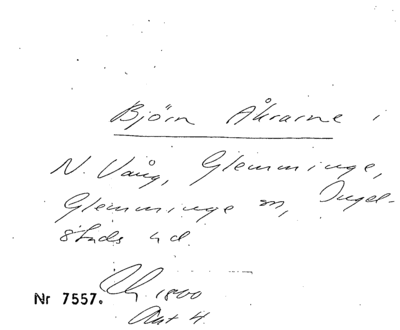 Björn Åkrarne i
N. Vång, Glemminge,
Glemminge sn, Ingel-
stads hd.
1800
Nr 7557.
Akt 4.